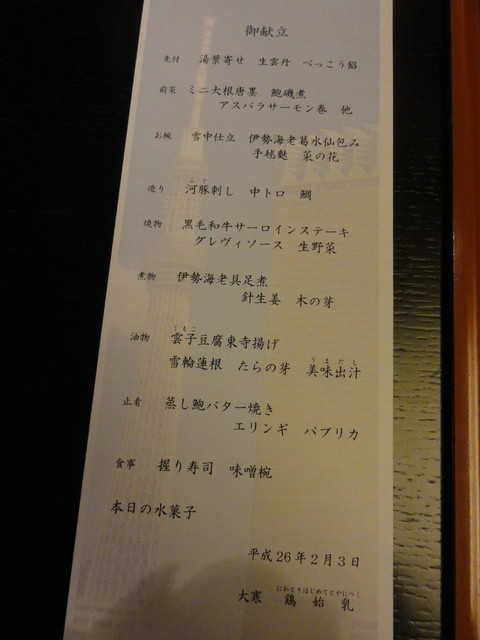 御献立
先付 湯葉寄せ 生雲丹 べっこう餡
前菜 ミニ大根唐墨 鮑磯煮
アスパラサーモン巻 他
お椀 雪中仕立 伊勢海老葛水仙包み
手毬麩 菜の花
造り 河豚刺し 中トロ 鯛
焼物 黒毛和牛サーロインステーキ
グレヴィソース 生野菜
煮物 伊勢海老具足煮
針生姜 木の芽
くもこ
油物 雲子豆腐東寺揚げ
うまだし
雪輪蓮根 たらの芽 美味出汁
止肴 蒸し鮑バター焼き
エリンギ パプリカ
食事 握り寿司 味噌椀
本日の水菓子
平成26年2月3日
にわとりはじめてとやにつく
大寒 鶏始乳